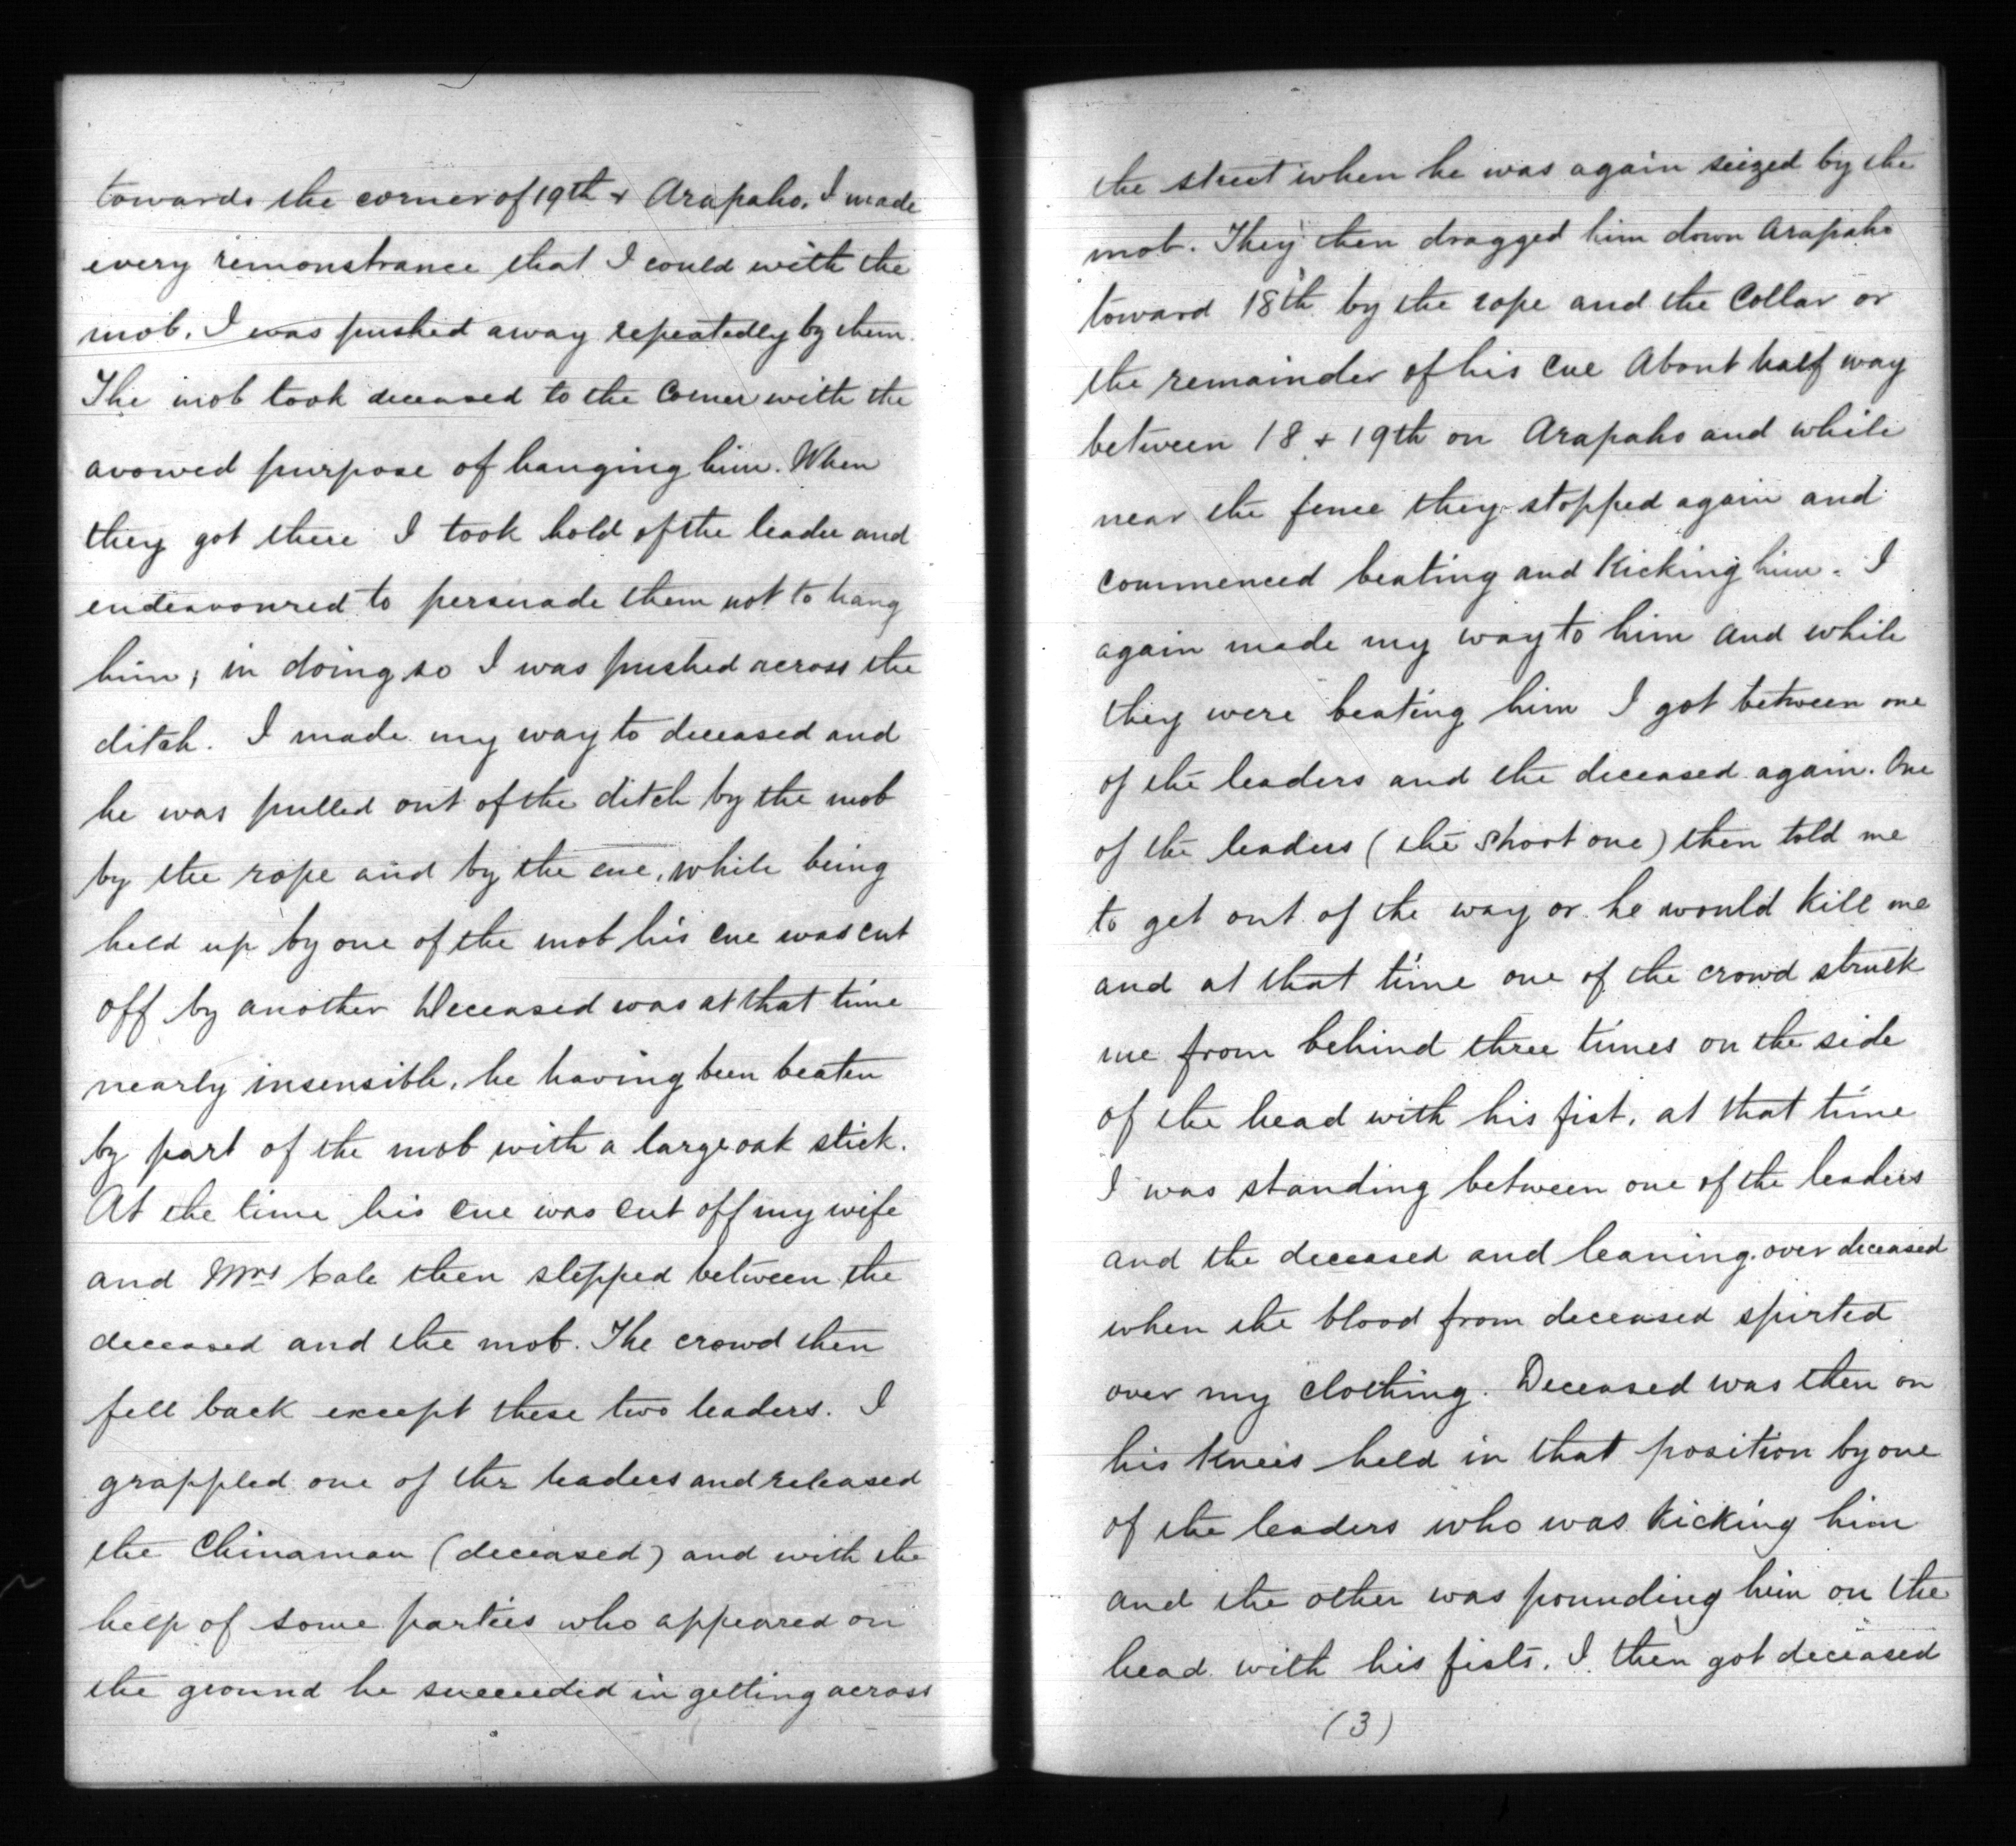 towards the corner of 19th & Arapaho. I made
every remonstrance that I could with the
mob. I was pushed away repeatedly by them.
The mob took deceased to the Corner with the
avowed purpose of hanging him. When
they got there I took hold of the leader and
endeavoured to persuade them not to hang
him; in doing so I was pushed across the
ditch. I made my way to deceased and
he was pulled out of the ditch by the mob
by the rope and by the cue, while being
held up by one of the mob his cue was cut
off by another Deceased was at that time
nearly insensible, he having been beaten
by part of the mob with a large oak stick.
At the time his cue was cut off my wife
and Mrs Cale then stepped between the
deceased and the mob. The crowd then
fell back except these two leaders. I
grappled one of the leaders and released
the Chinaman (deceased) and with the
help of some parties who appeared on
the ground he succeeded in getting across
the street when he was again seized by the
mob. They then dragged him down Arapaho
toward 18th by the rope and the Collar or
the remainder of his cue About half way
between 18 & 19th on Arapaho and while
near the fence they stopped again and
commenced beating and Kicking him. I
again made my way to him and while
they were beating him I got between one
of the leaders and the deceased again. One
of the leaders (the Short one) then told me
to get out of the way or he would Kill me
and at that time one of the crowd struck
me from behind three times on the side
of the head with his fist, at that time
I was standing between one of the leaders
and the deceased and leaning over deceased
when the blood from deceased spirted
over my clothing. Deceased was then on
his Knees held in that position by one
of the leaders who was Kicking him
and the other was pounding him on the
head with his fists. I then got deceased
(3)